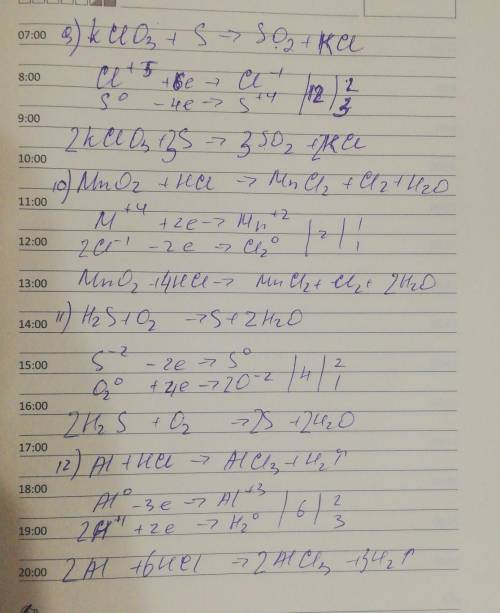 07:00 9) KClO3 + S → SO2 + KCl
8:00 Cl+5 +6e → Cl-1 |12| 2
S0 -4e → S+4 | | 3
9:00
2KClO3 + 3S → 3SO2 + 2KCl
10:00
10) MnO2 + HCl → MnCl2 + Cl2 + H2O
11:00
M+4 +2e → Mn+2 |2| 1
12:00 2Cl-1 -2e → Cl20 | | 1
13:00 MnO2 + 4HCl → MnCl2 + Cl2 + 2H2O
11) H2S + O2 → S + 2H2O
14:00
15:00 S-2 -2e → S0 |4| 2
O20 +4e → 2O-2 | | 1
16:00
2H2S + O2 → 2S + 2H2O
17:00
12) Al + HCl → AlCl3 + H2↑
18:00
Al0 -3e → Al+3 |6| 2
19:00 2H+1 +2e → H20 | | 3
20:00 2Al + 6HCl → 2AlCl3 + 3H2↑